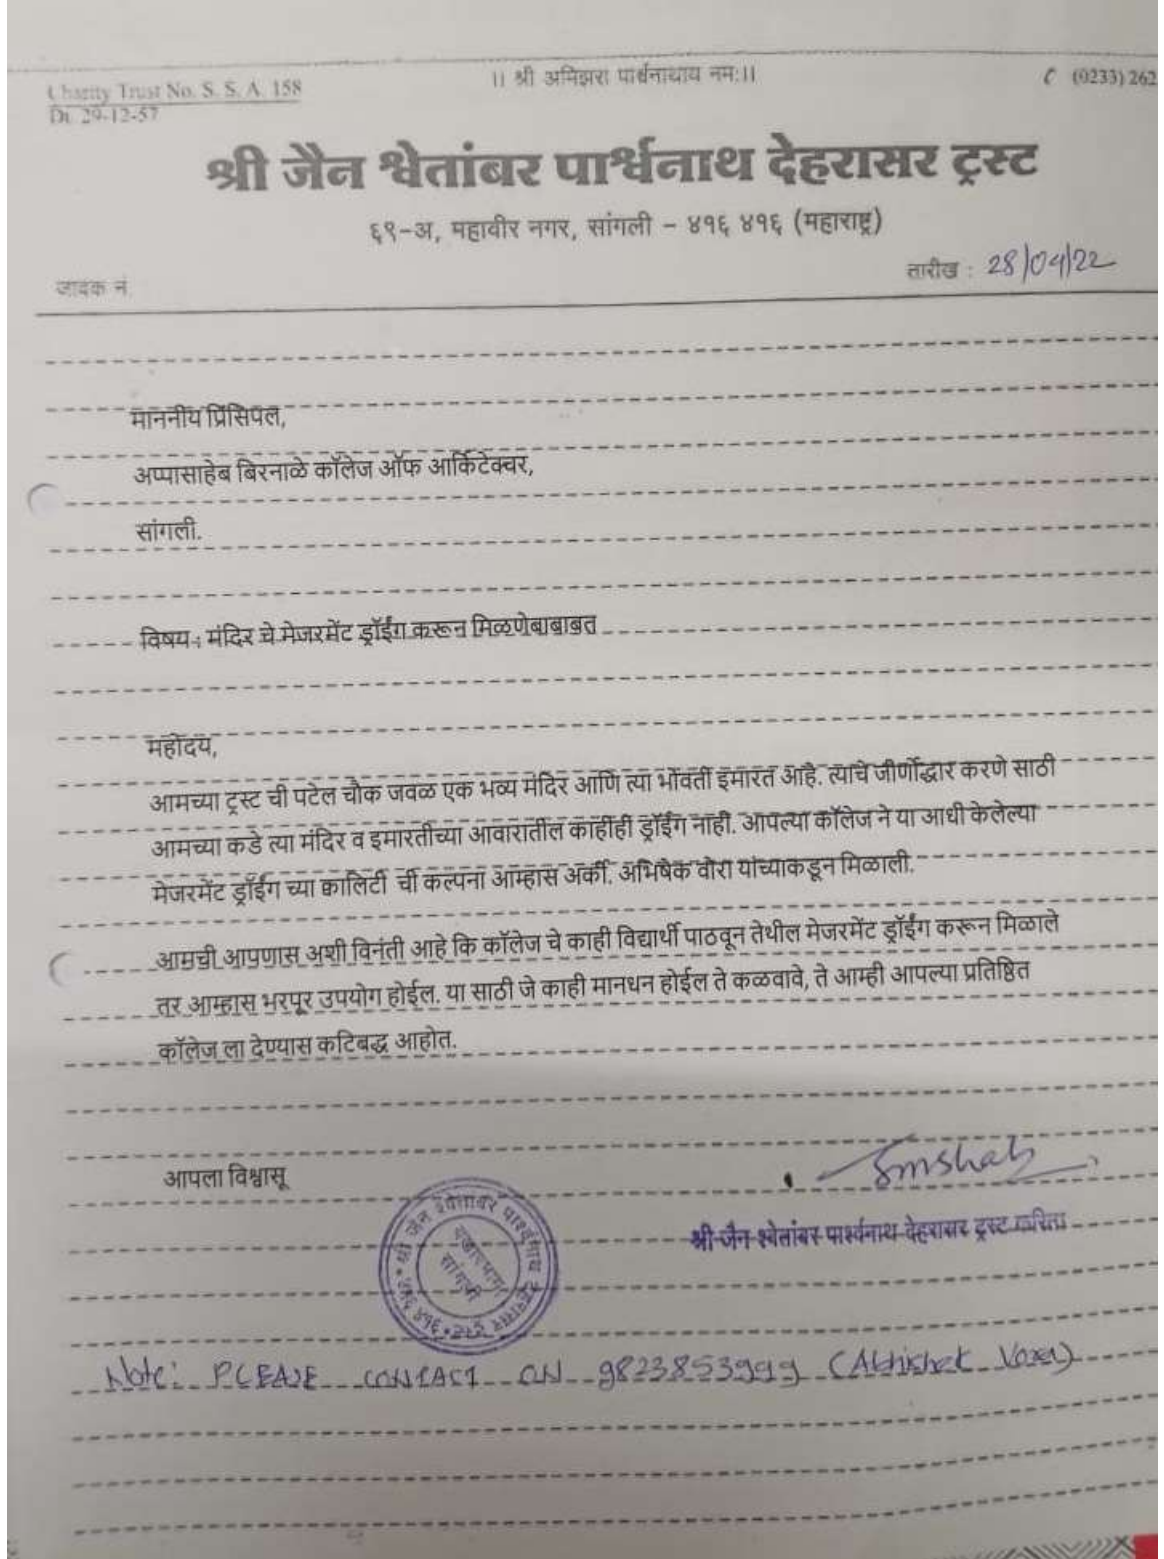 Charity Trust No. S. S. A. 158
Dt. 29-12-57
।। श्री अमिझरा पार्श्वनाथाय नमः।।
(0233) 262
श्री जैन श्वेतांबर पार्श्वनाथ देहरासर ट्रस्ट
६९-अ, महावीर नगर, सांगली - ४१६ ४१६ (महाराष्ट्र)
जावक नं.
तारीख : 28/04/22
माननीय प्रिंसिपल,
अप्पासाहेब बिरनाळे कॉलेज ऑफ आर्किटेक्चर,
सांगली.
विषय : मंदिर चे मेजरमेंट ड्रॉईंग करून मिळणेबाबाबत
महोदय,
आमच्या ट्रस्ट ची पटेल चौक जवळ एक भव्य मंदिर आणि त्या भोवती इमारत आहे. त्याचे जीर्णोद्धार करणे साठी
आमच्या कडे त्या मंदिर व इमारतीच्या आवारातील काहीही ड्रॉईंग नाही. आपल्या कॉलेज ने या आधी केलेल्या
मेजरमेंट ड्रॉईंग च्या क्वालिटी ची कल्पना आम्हास अर्की. अभिषेक वोरा यांच्याकडून मिळाली.
आमची आपणास अशी विनंती आहे कि कॉलेज चे काही विद्यार्थी पाठवून तेथील मेजरमेंट ड्रॉईंग करून मिळाले
तर आम्हास भरपूर उपयोग होईल. या साठी जे काही मानधन होईल ते कळवावे, ते आम्ही आपल्या प्रतिष्ठित
कॉलेज ला देण्यास कटिबद्ध आहोत.
आपला विश्वासू
Smshah
श्री जैन श्वेतांबर पार्श्वनाथ देहरासर ट्रस्ट करिता
श्री जैन श्वेतांबर पार्श्वनाथ देहरासर ट्रस्ट
सांगली
Note: PLEASE CONTACT ON 9823853999 (Abhishek Vora)